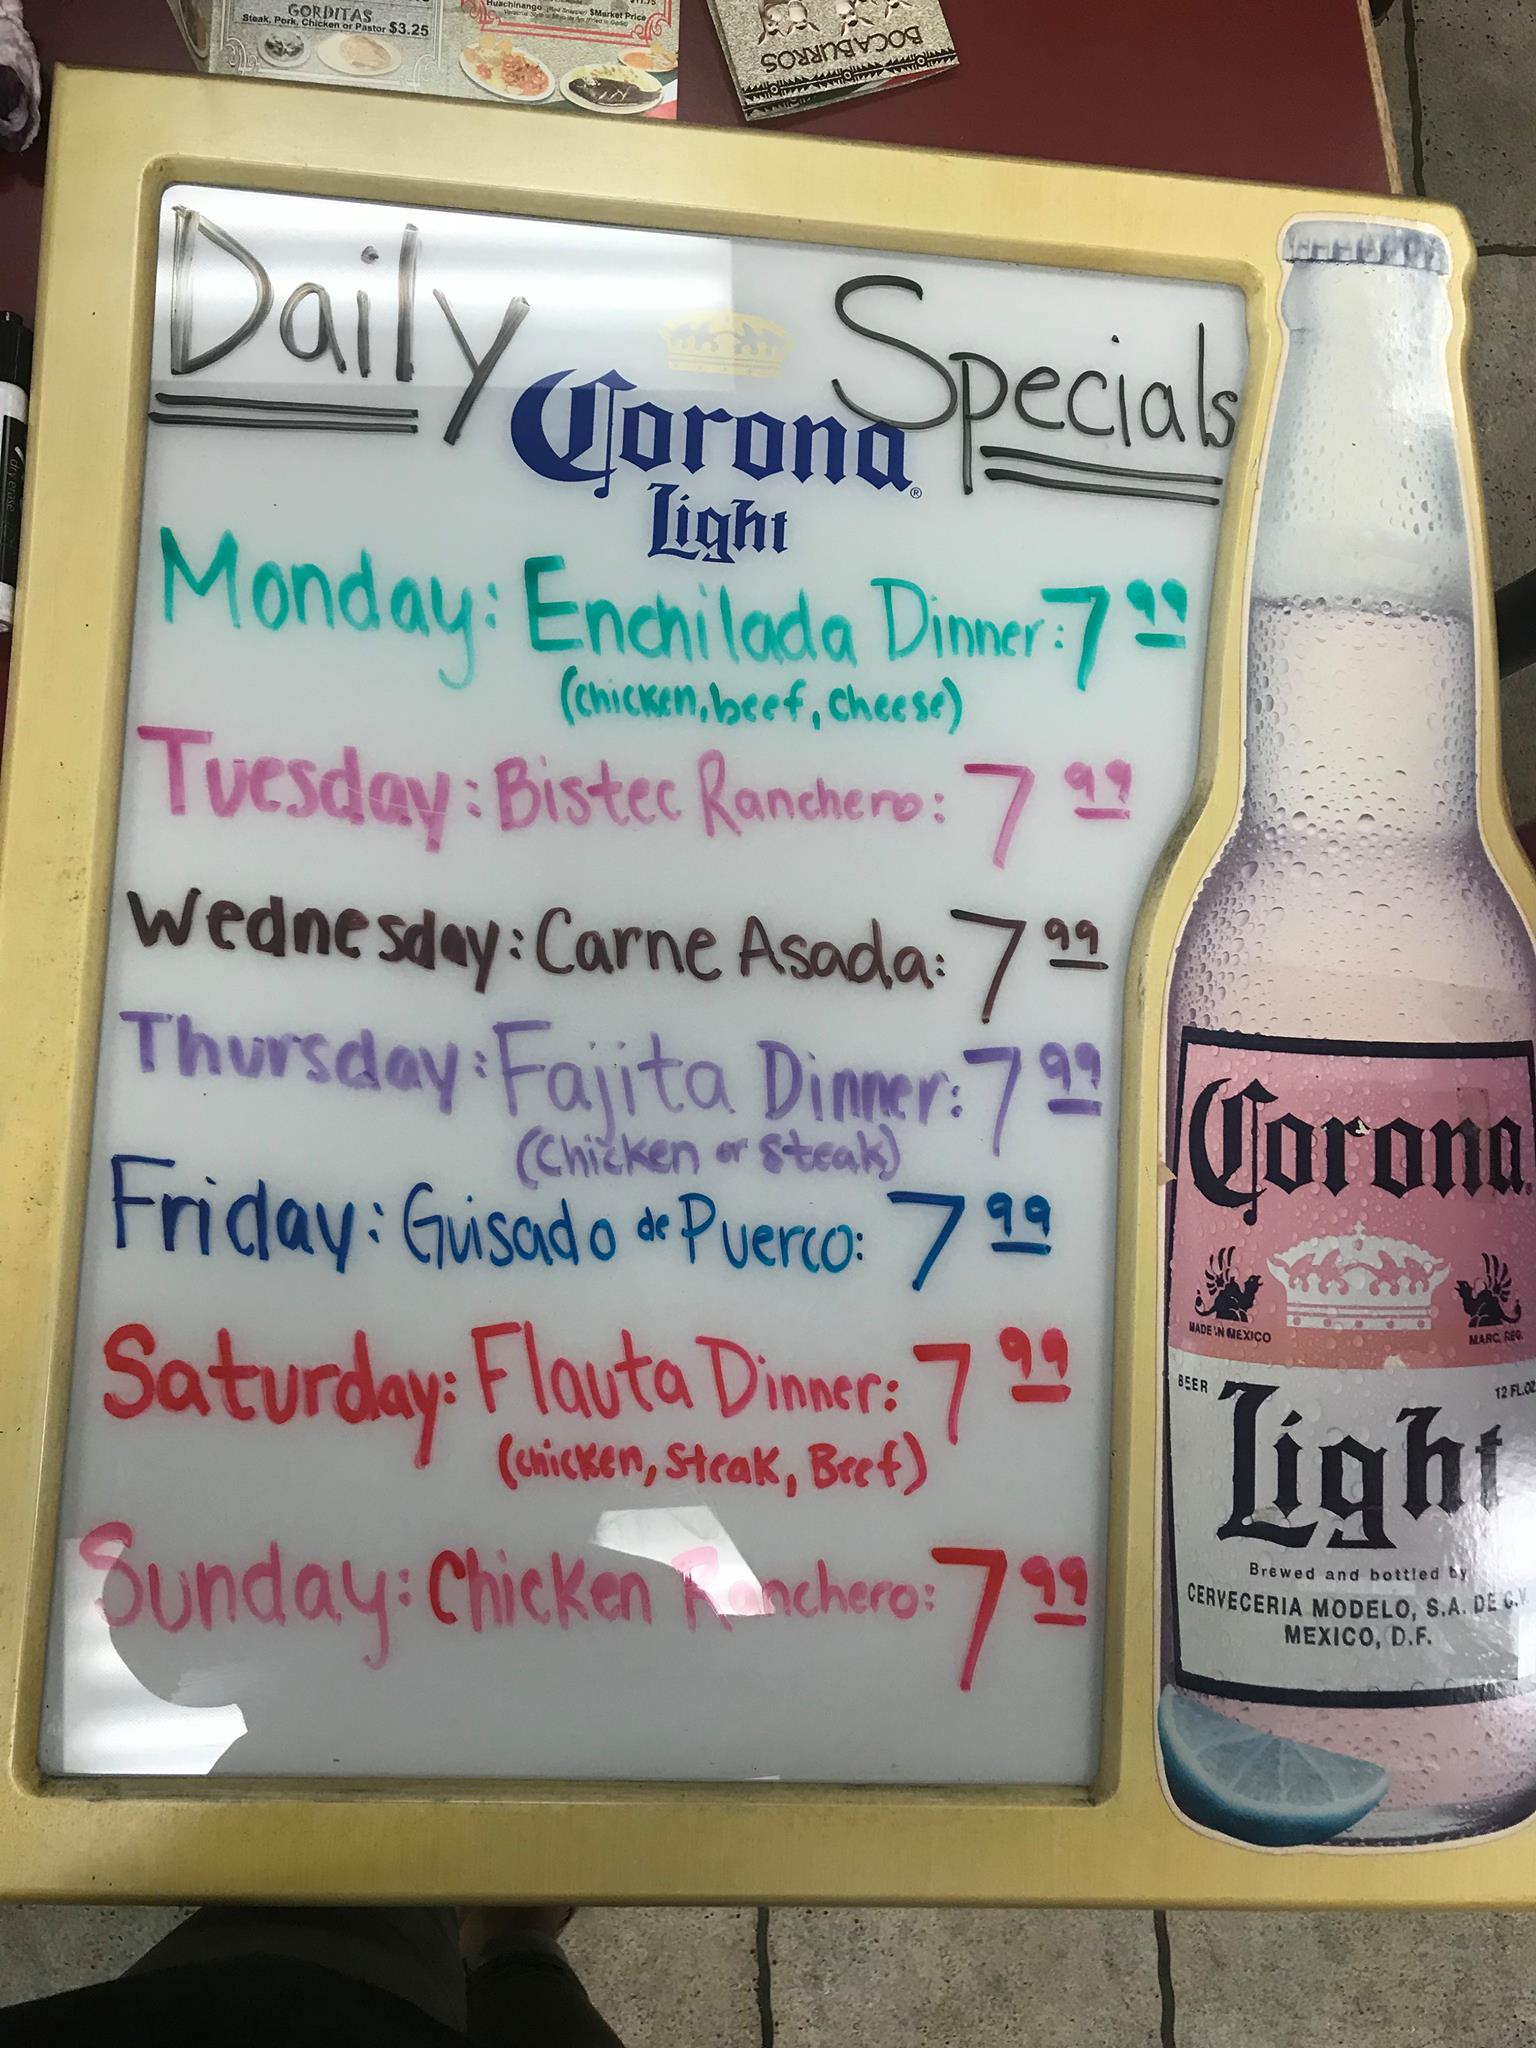 GORDITAS
Steak, Pork, Chicken or Pastor $3.25
Huachinango (Red Snapper) $Market Price
BOCABURROS
dry erase
Daily Specials
Corona
Light
Monday: Enchilada Dinner: 7 99
(chicken, beef, cheese)
Tuesday: Bistec Ranchero: 7 99
Wednesday: Carne Asada: 7 99
Thursday: Fajita Dinner: 7 99
(Chicken or steak)
Friday: Guisado de Puerco: 7 99
Saturday: Flauta Dinner: 7 99
(chicken, steak, Beef)
Sunday: Chicken Ranchero: 7 99
Corona
MADE IN MEXICO
MARC. REG.
BEER
12 FL.OZ
Light
Brewed and bottled by
CERVECERIA MODELO, S.A. DE C.V.
MEXICO, D.F.